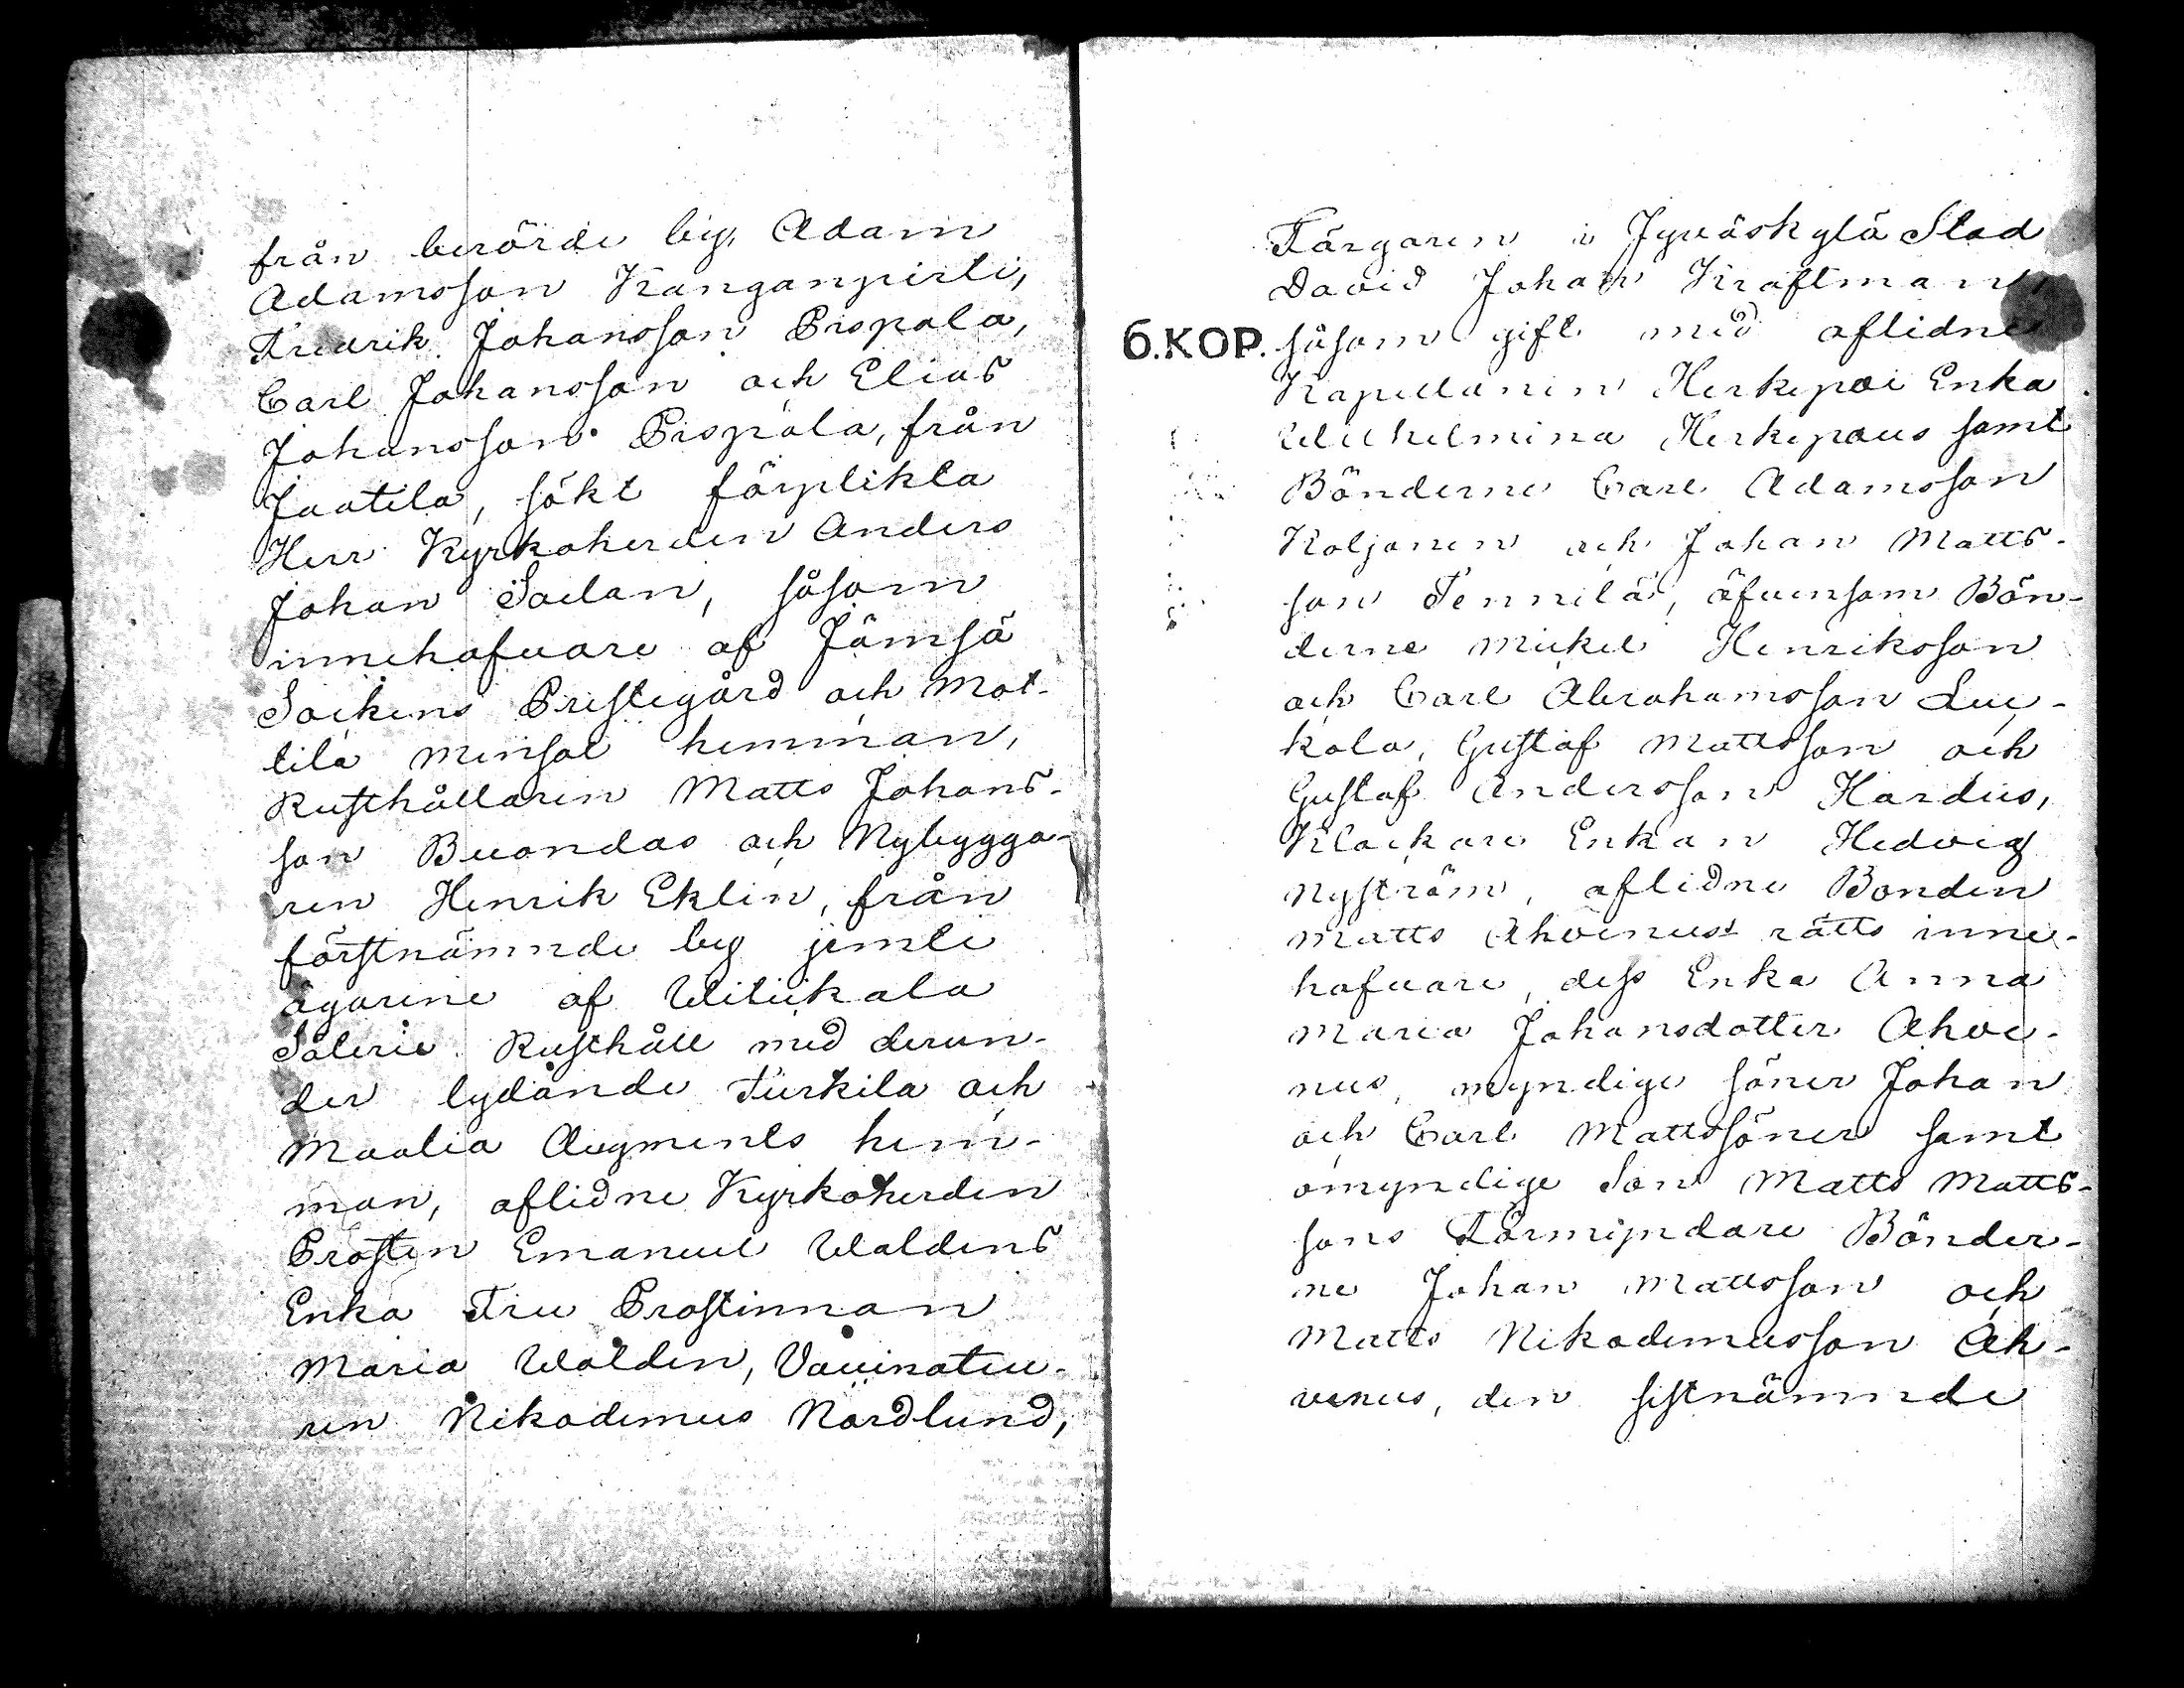 från berörde by, Adam
Adamsson Kanganpirti,
Fredrik Johansson Pispala,
Carl Johansson och Elias
Johansson Pispala, från
Jaatila, sökt förplikta
Herr Kyrkoherden Anders
Johan Sadan, såsom
innehafvare af Jämsä
Sockens Prestegård och Mat-
tila Mensal hemman,
Rusthållaren Matts Johans-
son Buandas och Nybygga-
ren Henrik Eklin, från
förstnämnde by jemte
ägarene af Witikala
Säterie Rusthåll med derun-
der lydande Turkila och
Maalia Augments hem-
man, aflidne Kyrkoherden
Prosten Emanuel Waldens
Enka Fru Prostinnan
Maria Walden, Vaccinateu-
ren Nikodemus Nordlund,
Färgaren i Jyväskylä Stad
David Johan Kraftman,
6.KOP. såsom gift med aflidne
Kapellanen Herkepæi Enka
Wilhelmina Herkepæus samt
Bönderne Carl Adamsson
Koljonen och Johan Matts-
son Tennilä, äfvensom Bön-
derne Mickel Henriksson
och Carl Abrahamsson Luu-
kola, Gustaf Mattsson och
Gustaf Andersson Hardus,
Klockare Enkan Hedvig
Nyström, aflidne Bonden
Matts Ahvenus rätts inne-
hafvare, dess Enka Anna
Maria Johansdotter Ahve-
nus, myndige söner Johan
och Carl Mattssöner samt
omyndige Son Matts Matts-
sons Förmyndare Bönder-
ne Johan Mattsson och
Matts Nikodemusson Ah-
venus, den sistnämnde